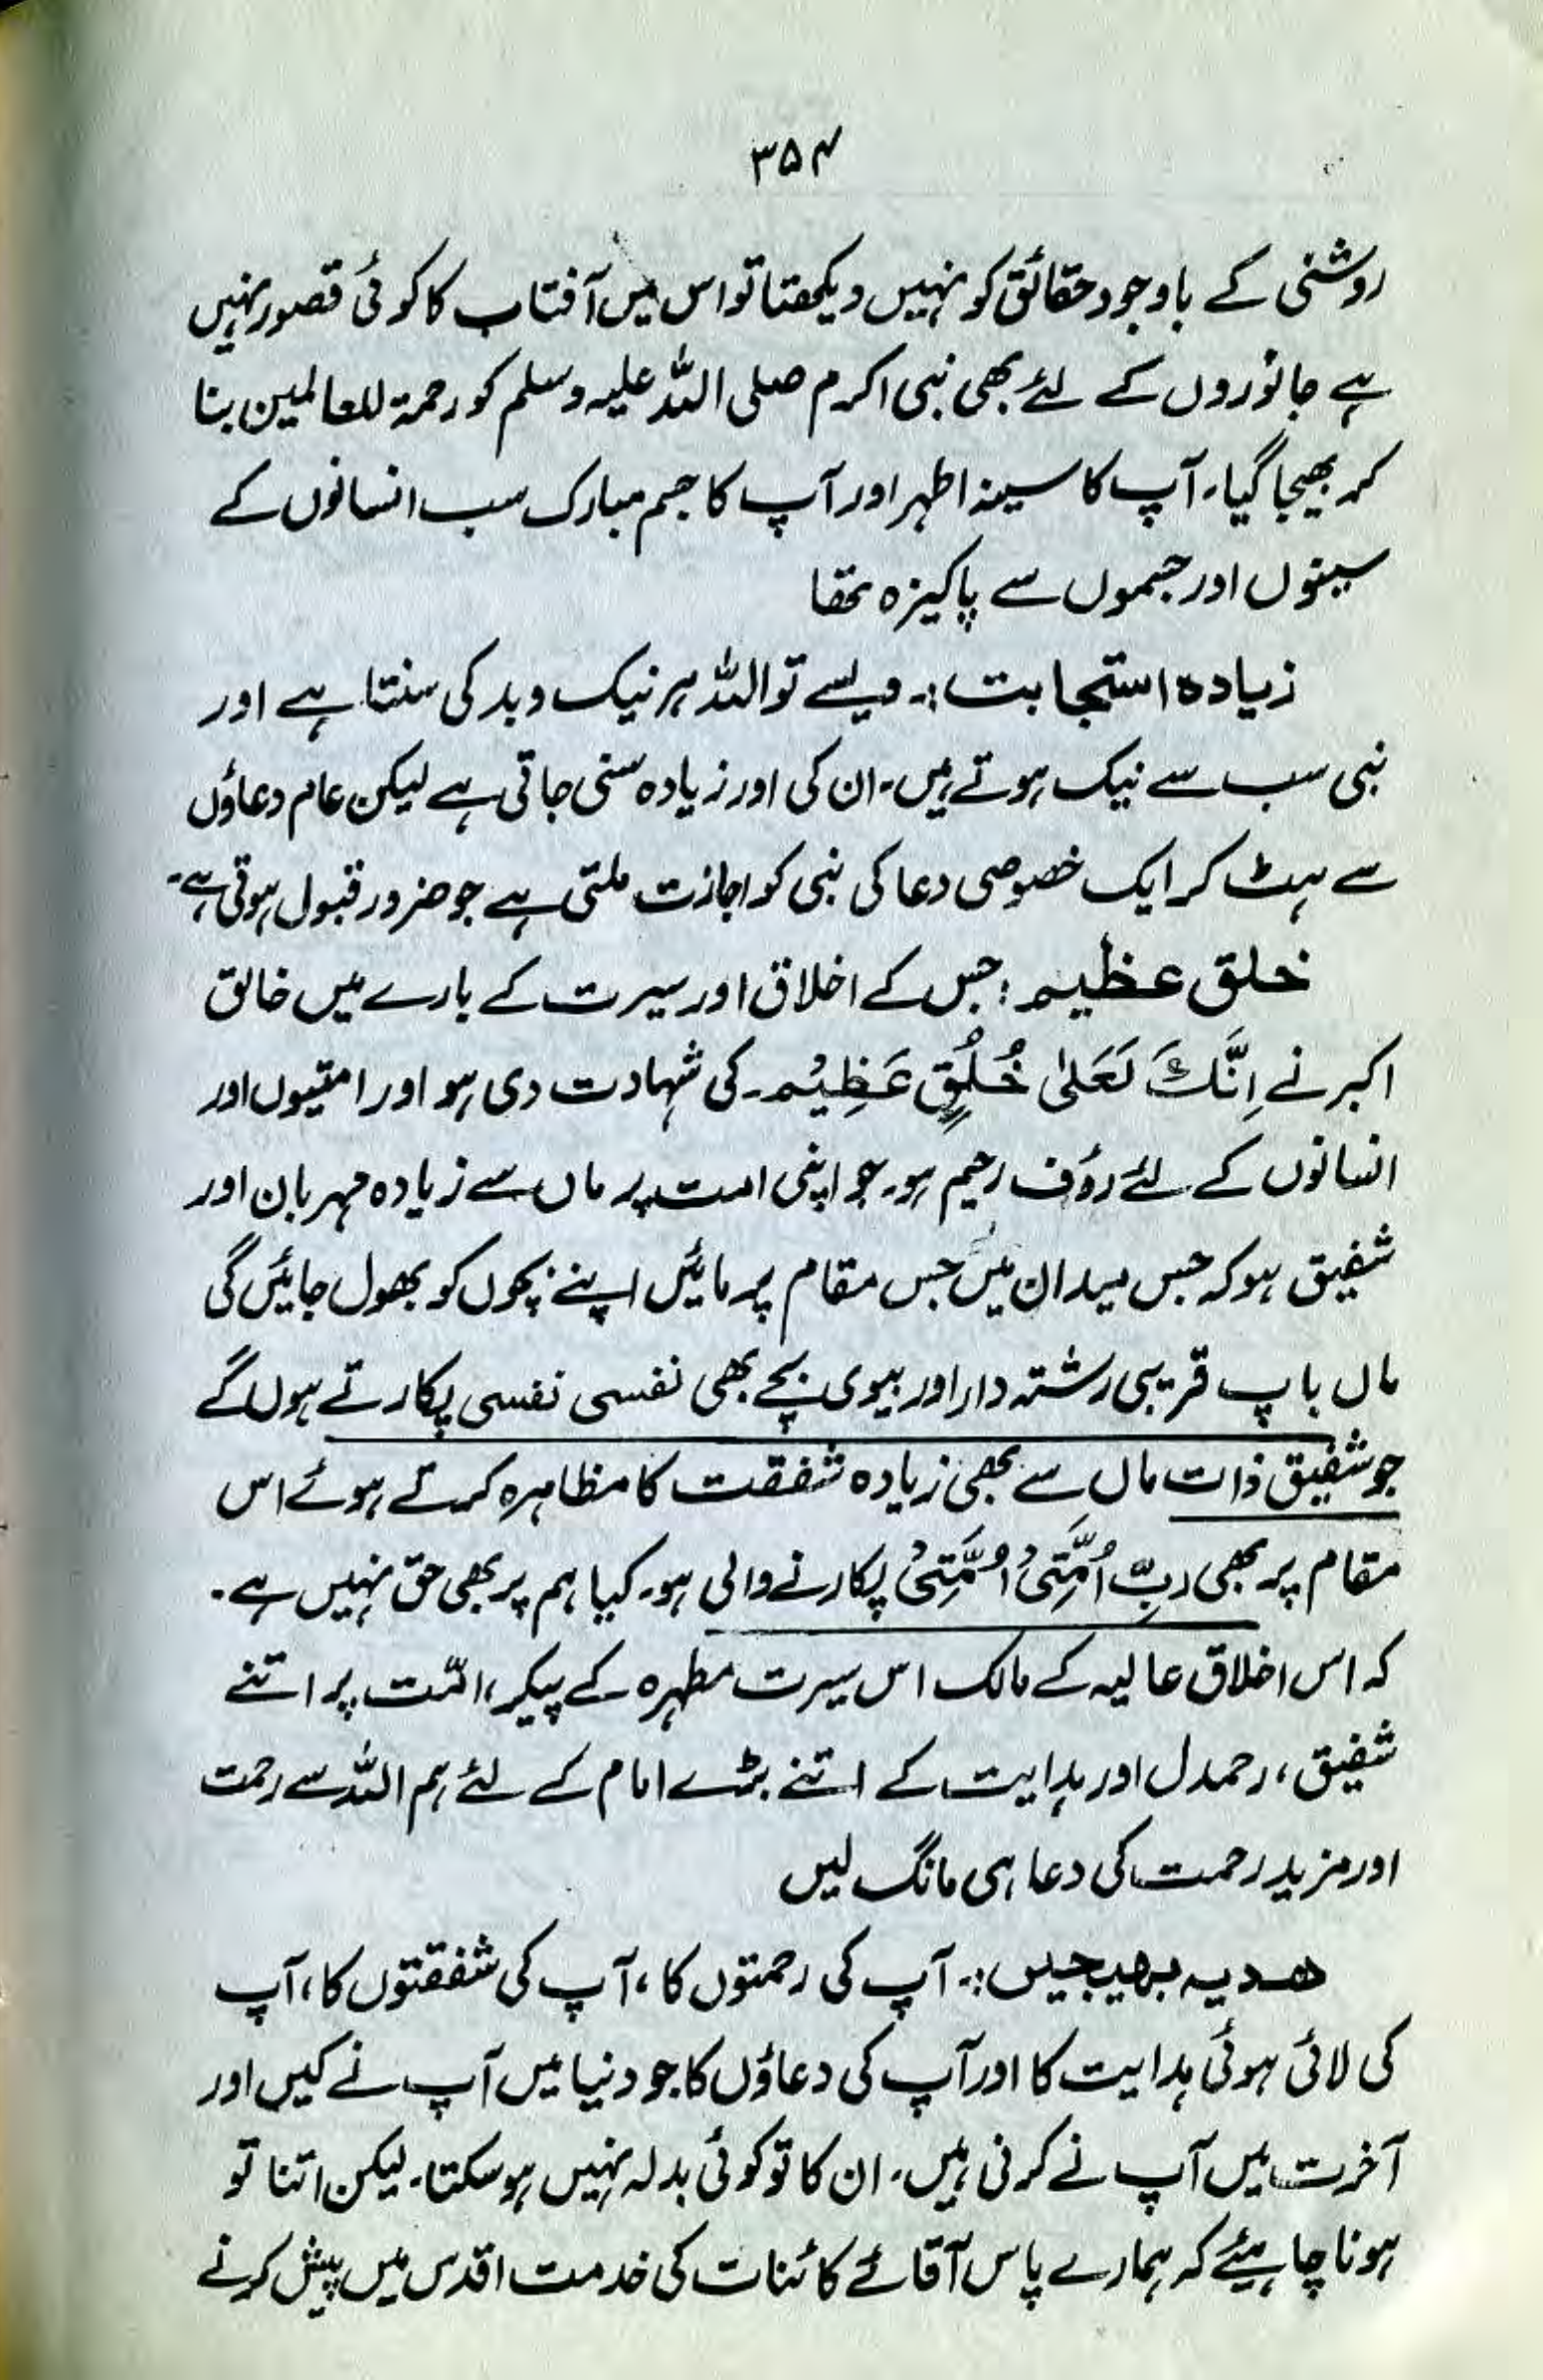 ۳۵۴
روشنی کے باوجود حقائق کو نہیں دیکھتا تو اس میں آفتاب کا کوئی قصور نہیں
ہے جانوروں کے لئے بھی نبی اکرم صلی اللہ علیہ وسلم کو رحمۃ للعالمین بنا
کر بھیجا گیا۔ آپ کا سینہ اطہر اور آپ کا جسم مبارک سب انسانوں کے
سینوں اور جسموں سے پاکیزہ تھا
زیادہ استجابت :۔ ویسے تو اللہ ہر نیک و بد کی سنتا ہے اور
نبی سب سے نیک ہوتے ہیں۔ ان کی اور زیادہ سنی جاتی ہے لیکن عام دعاؤں
سے ہٹ کر ایک خصوصی دعا کی نبی کو اجازت ملتی ہے جو ضرور قبول ہوتی ہے۔
خلق عظیم : جس کے اخلاق اور سیرت کے بارے میں خالق
اکبر نے اِنَّكَ لَعَلىٰ خُلُقٍ عَظِيْم۔ کی شہادت دی ہو اور امتیوں اور
انسانوں کے لئے رؤف رحیم ہو۔ جو اپنی امت پر ماں سے زیادہ مہربان اور
شفیق ہو کہ جس میدان میں جس مقام پر مائیں اپنے بچوں کو بھول جائیں گی
ماں باپ قریبی رشتہ دار اور بیوی بچے بھی نفسی نفسی پکارتے ہوں گے
جو شفیق ذات ماں سے بھی زیادہ شفقت کا مظاہرہ کرتے ہوئے اس
مقام پر بھی ربِّ اُمَّتِیْ اُمَّتِیْ پکارنے والی ہو۔ کیا ہم پر بھی حق نہیں ہے۔
کہ اس اخلاق عالیہ کے مالک اس سیرت مطہرہ کے پیکر، امّت پر اتنے
شفیق، رحمدل اور ہدایت کے اتنے بڑے امام کے لئے ہم اللہ سے رحمت
اور مزید رحمت کی دعا ہی مانگ لیں
ھدیہ بھیجیں :۔ آپ کی رحمتوں کا، آپ کی شفقتوں کا، آپ
کی لائی ہوئی ہدایت کا اور آپ کی دعاؤں کا جو دنیا میں آپ نے کیں اور
آخرت میں آپ نے کرنی ہیں۔ ان کا تو کوئی بدلہ نہیں ہو سکتا۔ لیکن اتنا تو
ہونا چاہیئے کہ ہمارے پاس آقائے کائنات کی خدمت اقدس میں پیش کرنے